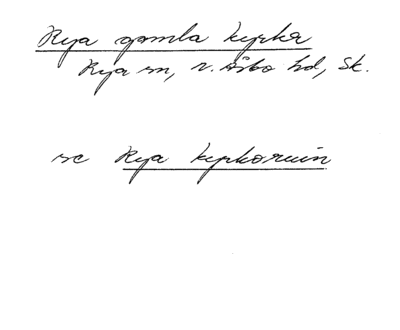 Rya gamla kyrka
Rya sn, n. Åsbo hd, Sk.
se Rya kyrkoruin